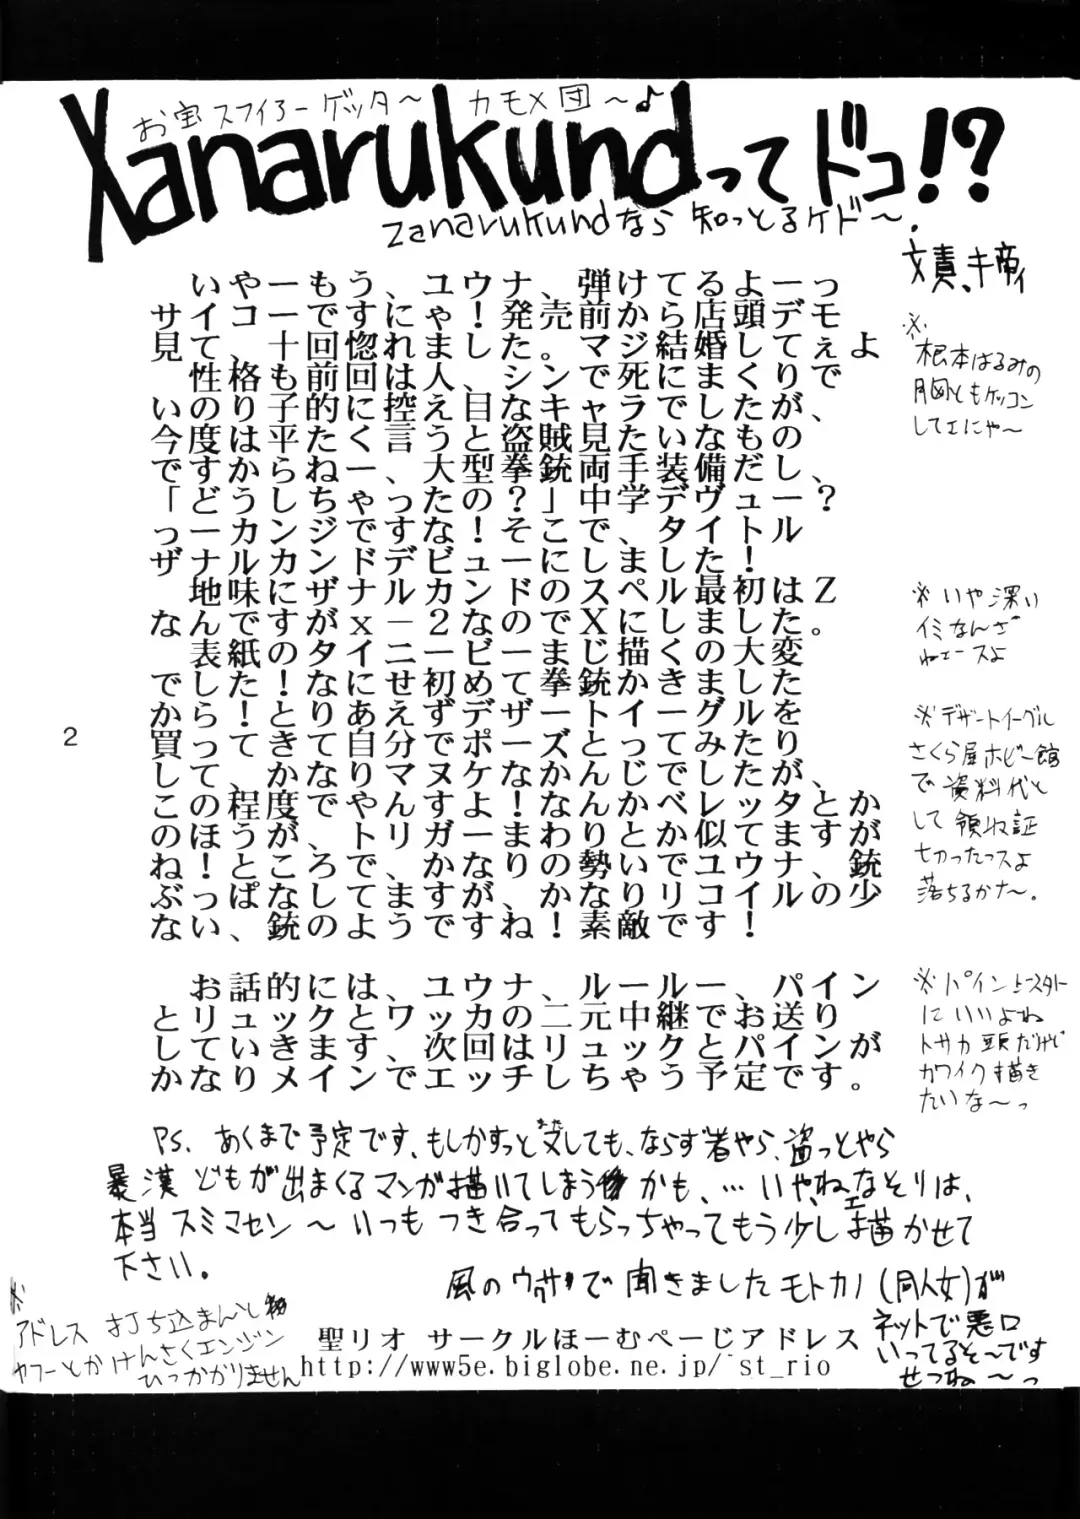 お宝スフィアーゲッタ～ カモメ団～♪
Xanarukundってドコ!?
zanarukundなら知っとるケド～.
文責、キ帝ィ
いやーもう、ユウナ、弾けてるよーっ
サイコーですにゃ！発売前から店頭デモ
見て、十回惚れました。マジ結婚してぇよ
性格も前回は人シンで死にまくりで
いのり子的に控え目なキャラでしたが、
今度は平たく言うと盗賊見たいなもの
ですからねー、大型拳銃両手装備だし、
「どうしちゃったの？」中学デヴュー？
っーカンジですな！そこで、タイトル
ザナルカンドデビューにしました！
地味にザナルカンドのスペル最初はＺ
なんですがｘ－２なのでＸにしました。
表紙のタイニービーまじ描くの大変
でした！なにせ初めて拳銃かきました
からっ！とりあえずデザートイーグルを
買って、ときて自分でポーズとってみたり
して、かなりマヌケなかんじでしたが、
この程度で、やんすよ！なんかベレッタとか
のほうが、トリガーまわりとか似てますが
ね！ところで、かなりの勢いでユウナ、銃
ぶっぱなしてますが、かなりリコイルの少
ない、銃のようですね！素敵です！
お話的には、ユウナ、ルールー、パイン
とリュックとワッカの二元中継でお送り
していきます、次回はリュックとパインが
かなりメインでエッチしちゃう予定です。
※根本はるみの
胸ともケッコン
してェにゃ～
※いや深い
イミなんざ
ねェースよ
※デザートイーグル
さくら屋ホビー館
で資料代と
して領収証
切ったっスよ
落ちるかな～。
2
※パイン上スタト
にいいよね
トサカ頭だけど
カワイク描き
たいな～っ
PS. あくまで予定です、もしかすっとまたしても、ならず者やら、盗っとやら
暴漢どもが出まくるマンガ描いてしまうかも、…いや、ねェなそりは、
本当スミマセン～いつもつき合ってもらっちゃってもう少し描かせて
下さい。
風のウワサで聞きましたモトカノ(同人女)が
ネットで悪口
いってるそ～です
せつね～っ
※
アドレス打ち込まんと
ヤフーとかけんさくエンジン
ひっかかりません
聖リオ サークルほーむぺーじアドレス
http://www5e.biglobe.ne.jp/~st_rio